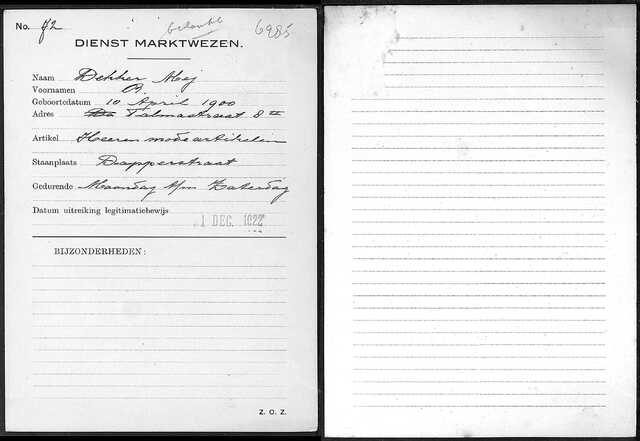 No. 72
betaald 6985
DIENST MARKTWEZEN.
Naam Dekker Mej
Voornamen A.
Geboortedatum 10 April 1900
Adres Talmastraat 8 II
Artikel Heeren mode artikelen
Staanplaats Dapperstraat
Gedurende Maandag t/m Zaterdag
Datum uitreiking legitimatiebewijs
1 DEC. 1922
BIJZONDERHEDEN:
Z. O. Z.